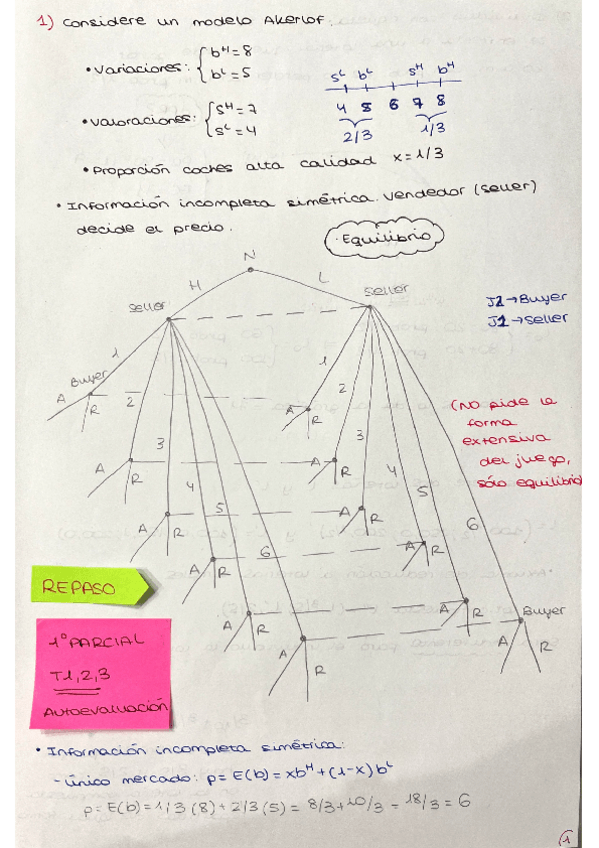 1) Considere un modelo Akerlof.
• Variaciones: { bᴴ = 8
bᴸ = 5
sᴸ bᴸ sᴴ bᴴ
4 5 6 7 8
2/3 1/3
• Valoraciones: { sᴴ = 7
sᴸ = 4
• Proporción coches alta calidad x = 1/3
• Información incompleta simétrica. Vendedor (seller)
decide el precio.
Equilibrio
N
H L
Seller Seller
J2 → Buyer
J1 → Seller
1 1
Buyer
A R 2 A R 2
(No pide la
forma
extensiva
del juego,
sólo equilibrio
3 3
A R A R
4 4
5 5
6 6
A R A R
A R A R
A R A R
Buyer
A R A R
REPASO
1º PARCIAL
T1,2,3
Autoevaluación
• Información incompleta simétrica:
- único mercado: p = E(b) = xbᴴ + (1-x) bᴸ
p = E(b) = 1/3 (8) + 2/3 (5) = 8/3 + 10/3 = 18/3 = 6
1